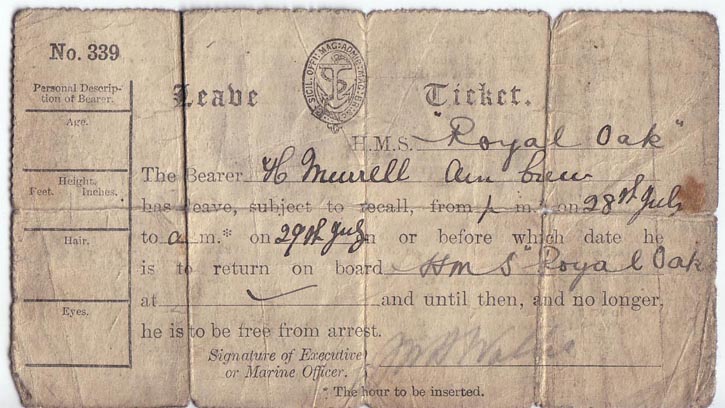 No. 339
Personal Descrip-
tion of Bearer.
Age.
Height.
Feet. Inches.
Hair.
Eyes.
Leave Ticket.
H.M.S. "Royal Oak"
The Bearer H Murrell
has leave, subject to recall, from p m. on 28th July
to a m.* on 29th July or before which date he
is to return on board HMS "Royal Oak
at and until then, and no longer,
he is to be free from arrest.
Signature of Executive
or Marine Officer.
* The hour to be inserted.